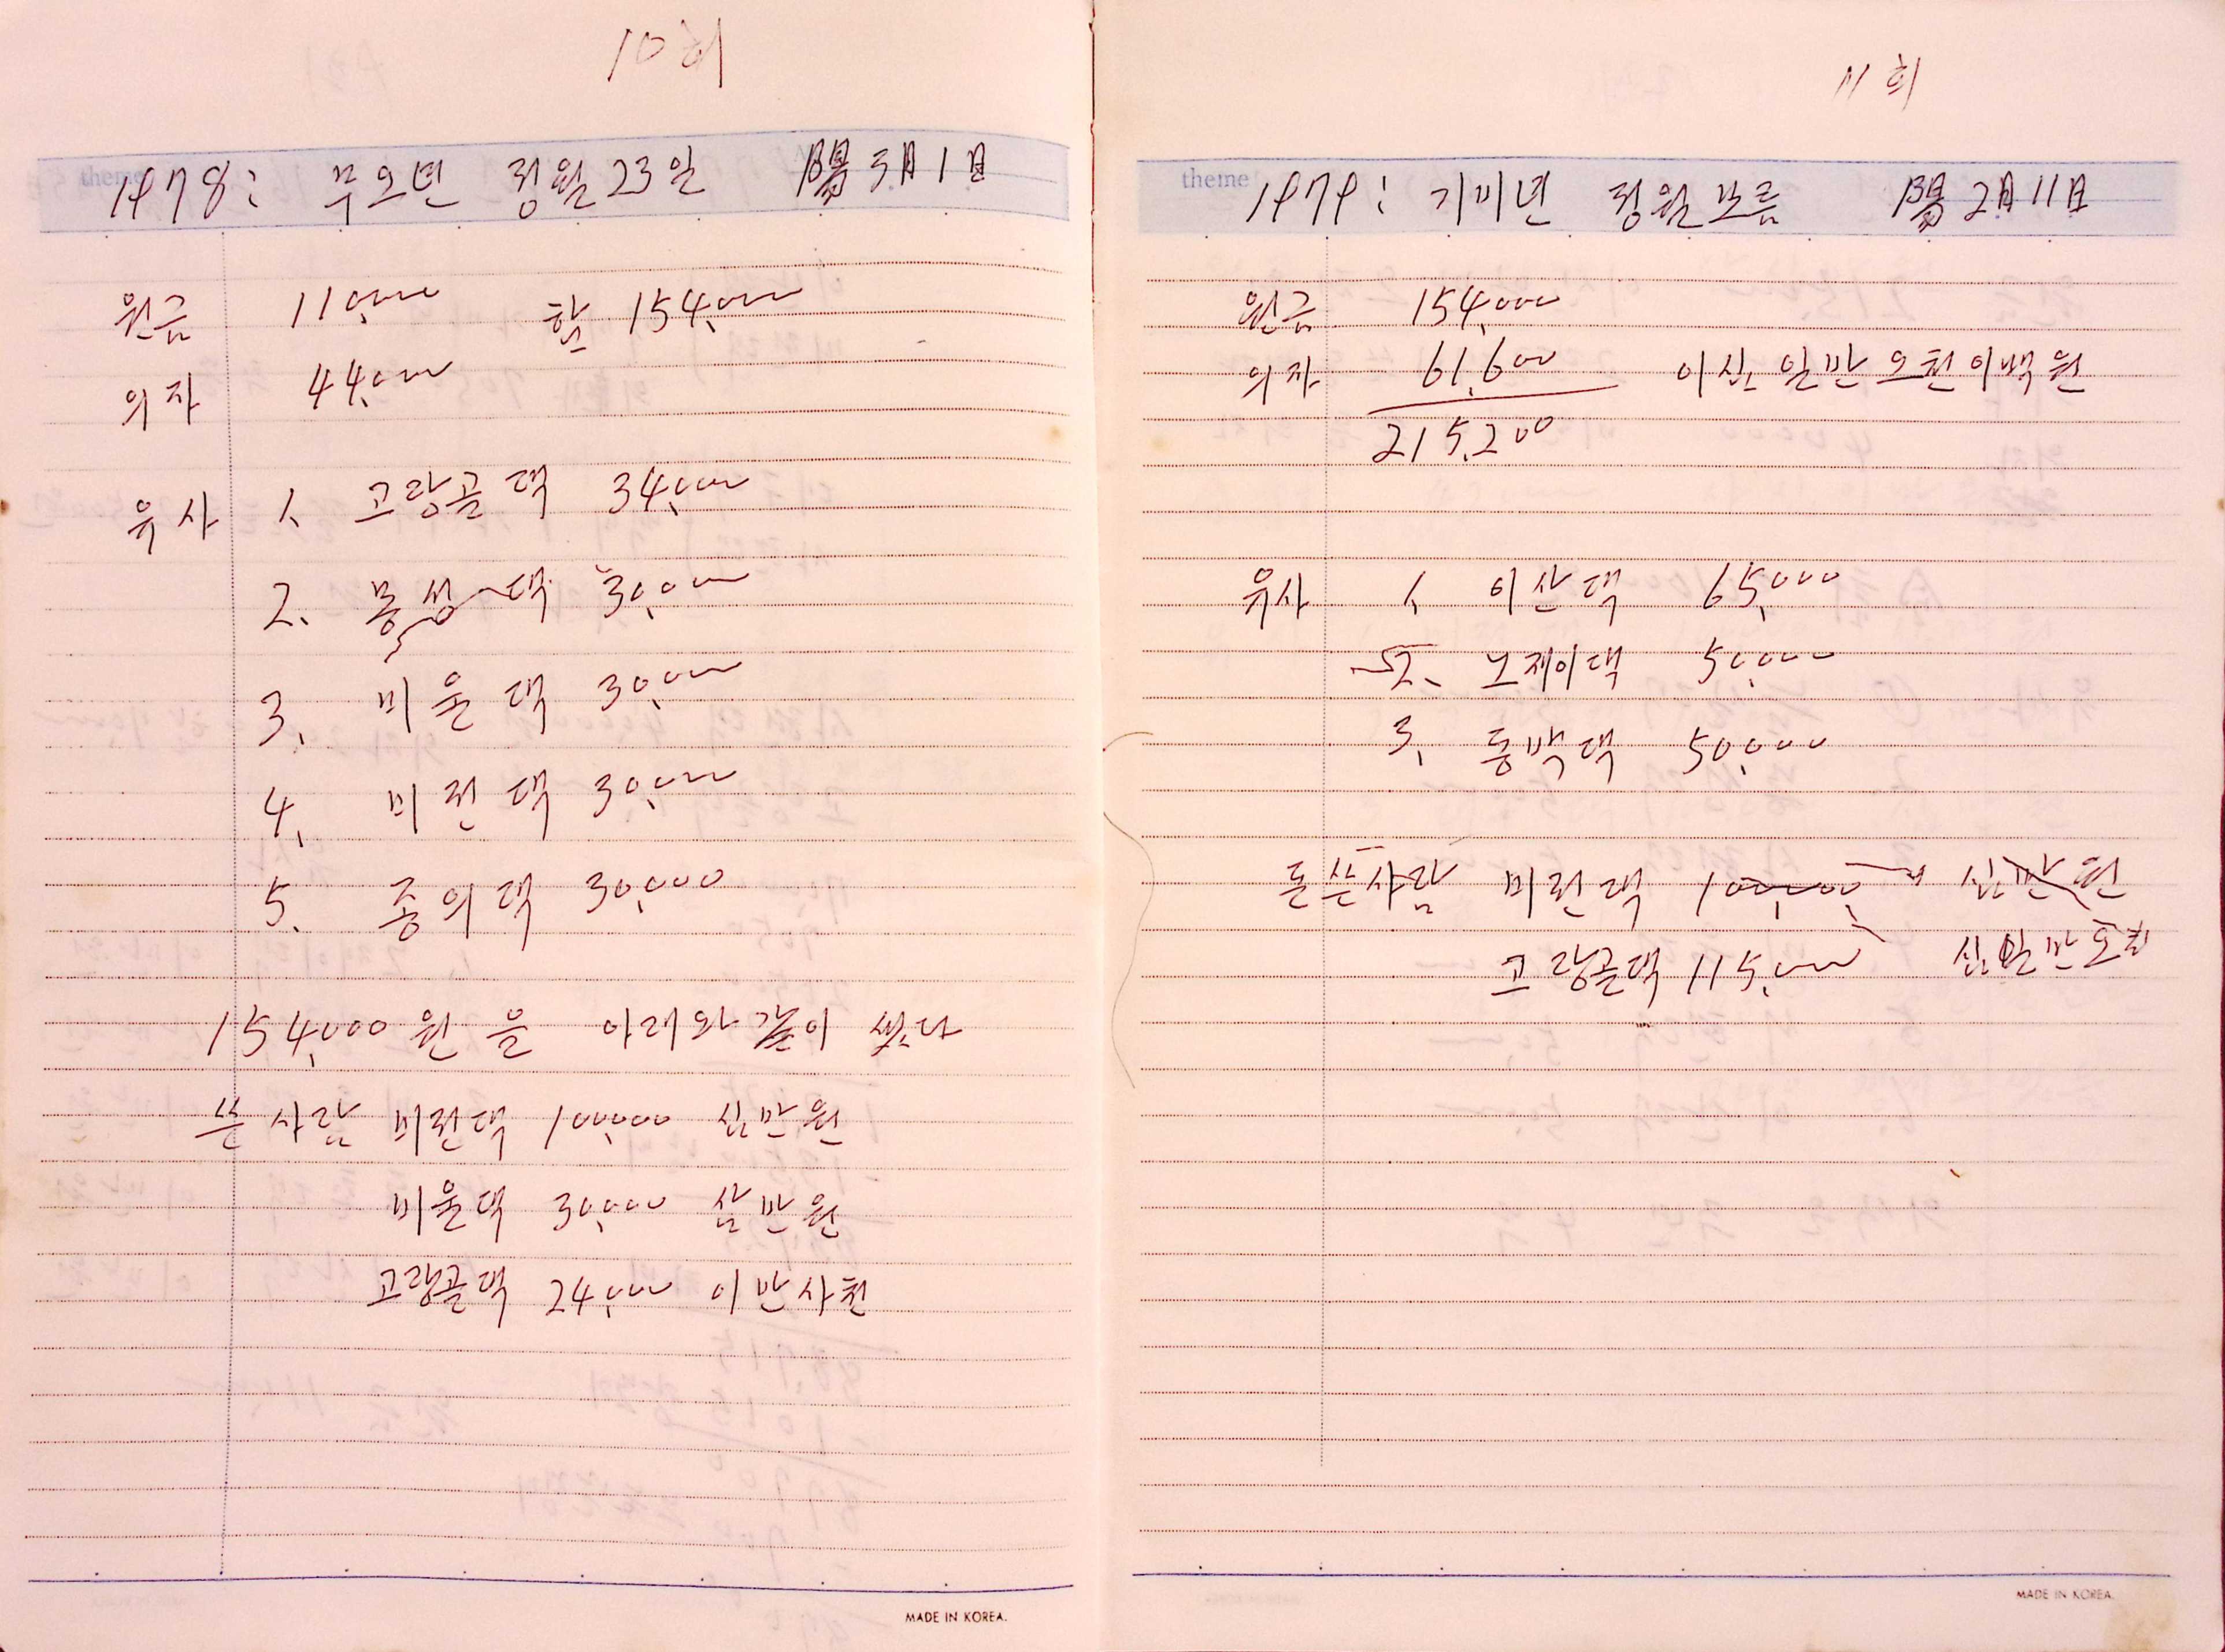 10회
theme
1978: 무오년 정월 23일 陽 3月 1日
원금 110,000 합 154,000
의자 44,000
유사 1、 고랑골댁 34,000
2、 동성댁 30,000
3、 미울댁 30,000
4、 미런댁 30,000
5、 종의댁 30,000
154,000원을 아래와 같이 썼다
쓴사람 미런댁 100,000 십만원
미울댁 30,000 삼만원
고랑골댁 24,000 이만사천
MADE IN KOREA.
11회
theme
1979: 기미년 정월보름 陽 2月 11日
원금 154,000
의자 61,600 이십일만오천이백원
215,200
유사 1、 이산댁 65,000
2、 노재이댁 50,000
3、 동박댁 50,000
돈쓴사람 미런댁 100,000 십만원
고랑골댁 115,000 십일만오천
MADE IN KOREA.